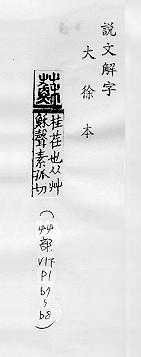 說文解字
大徐本
蘇
桂荏也从艸
穌聲素孤切
(艸部V1下P1b7~b8)